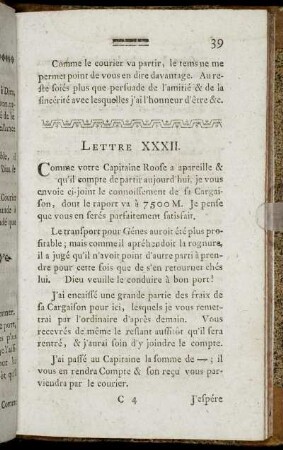 39
Comme le courier va partir, le tems ne me
permet point de vous en dire davantage. Au re-
ste soiés plus que persuade de l'amitié & de la
sincérité avec lesquelles j'ai l'honneur d'être &c.
LETTRE XXXII.
Comme votre Capitaine Roose a apareille &
qu'il compte de partir aujourd'hui, je vous
envoie ci-joint le connoissement de sa Cargai-
son, dont le raport va à 7500 M. Je pense
que vous en serés parfaitement satisfait.
Le transport pour Génes auroit été plus pro-
fitable; mais comme il apréhendoit la rognure,
il a jugé qu'il n'avoit point d'autre parti à pren-
dre pour cette fois que de s'en retourner chés
lui. Dieu veuille le conduire à bon port!
J'ai encaissé une grande partie des fraix de
sa Cargaison pour ici, lesquels je vous remet-
trai par l'ordinaire d'après demain. Vous
recevrés de même le restant aussitôt qu'il sera
rentré, & j'aurai soin d'y joindre le compte.
J'ai passé au Capitaine la somme de — ; il
vous en rendra Compte & son reçu vous par-
viendra par le courier.
C 4 J'espére